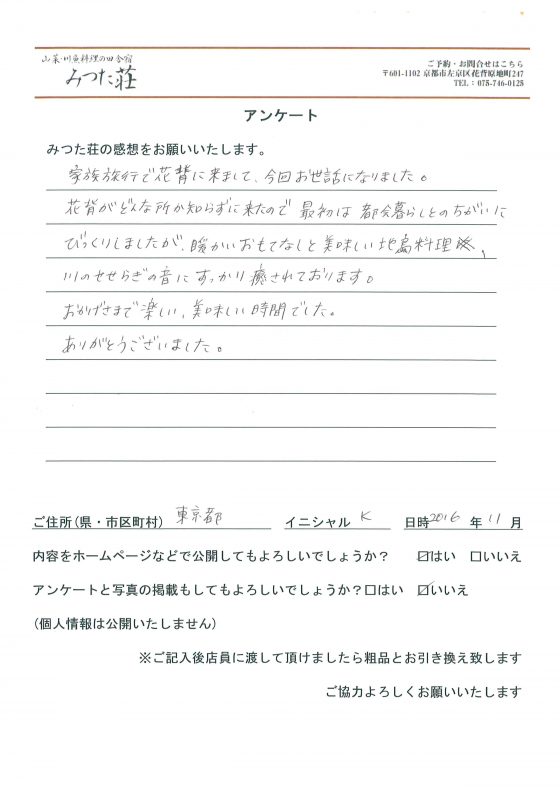 山菜・川魚料理の田舎宿
みつた荘
ご予約・お問合せはこちら
〒601-1102 京都市左京区花背原地町247
TEL：075-746-0128
アンケート
みつた荘の感想をお願いいたします。
家族旅行で花背に来まして、今回お世話になりました。
花背がどんな所か知らずに来たので 最初は 都会暮らしとのちがいに
びっくりしましたが、暖かいおもてなしと美味しい地鶏料理、
川のせせらぎの音に すっかり 癒されております。
おかげさまで楽しい、美味しい時間でした。
ありがとうございました。
ご住所（県・市区町村） 東京都 イニシャル K 日時 2016 年 11 月
内容をホームページなどで公開してもよろしいでしょうか？ ☑はい ☐いいえ
アンケートと写真の掲載もしてもよろしいでしょうか？☐はい ☑いいえ
（個人情報は公開いたしません）
※ご記入後店員に渡して頂けましたら粗品とお引き換え致します
ご協力よろしくお願いいたします